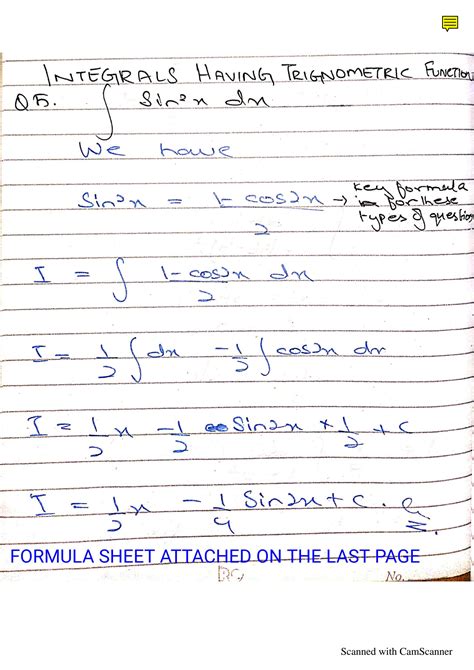 INTEGRALS HAVING TRIGNOMETRIC FUNCTION
Q5. ∫ Sin²x dx
We have
Sin²x = 1-cos2x / 2 → key formula
in for these
types of question
I = ∫ 1-cos2x / 2 dx
I = 1/2 ∫ dx - 1/2 ∫ cos2x dx
I = 1/2 x - 1/2 Sin2x * 1/2 + c
I = 1/2 x - 1/4 Sin2x + c.
FORMULA SHEET ATTACHED ON THE LAST PAGE
No.
Scanned with CamScanner